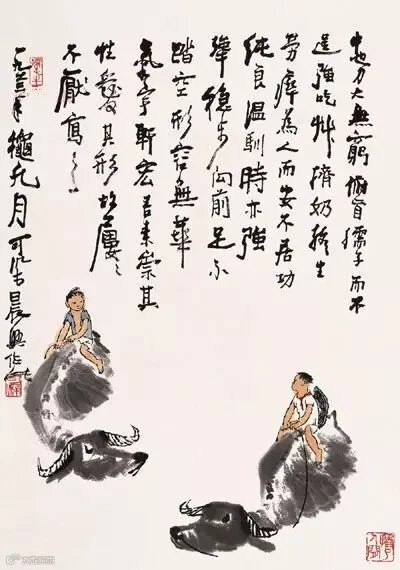 牛也力大無窮俯首孺子而不
逞强吃艸擠奶終生
勞瘁爲人而安不居功
純良温馴時亦强
犟穩步向前足不
踏空形容無華
氣宇軒宏吾素崇其
性愛其形故屢屢
不厭寫之
一九六二年龝九月可染晨興作此